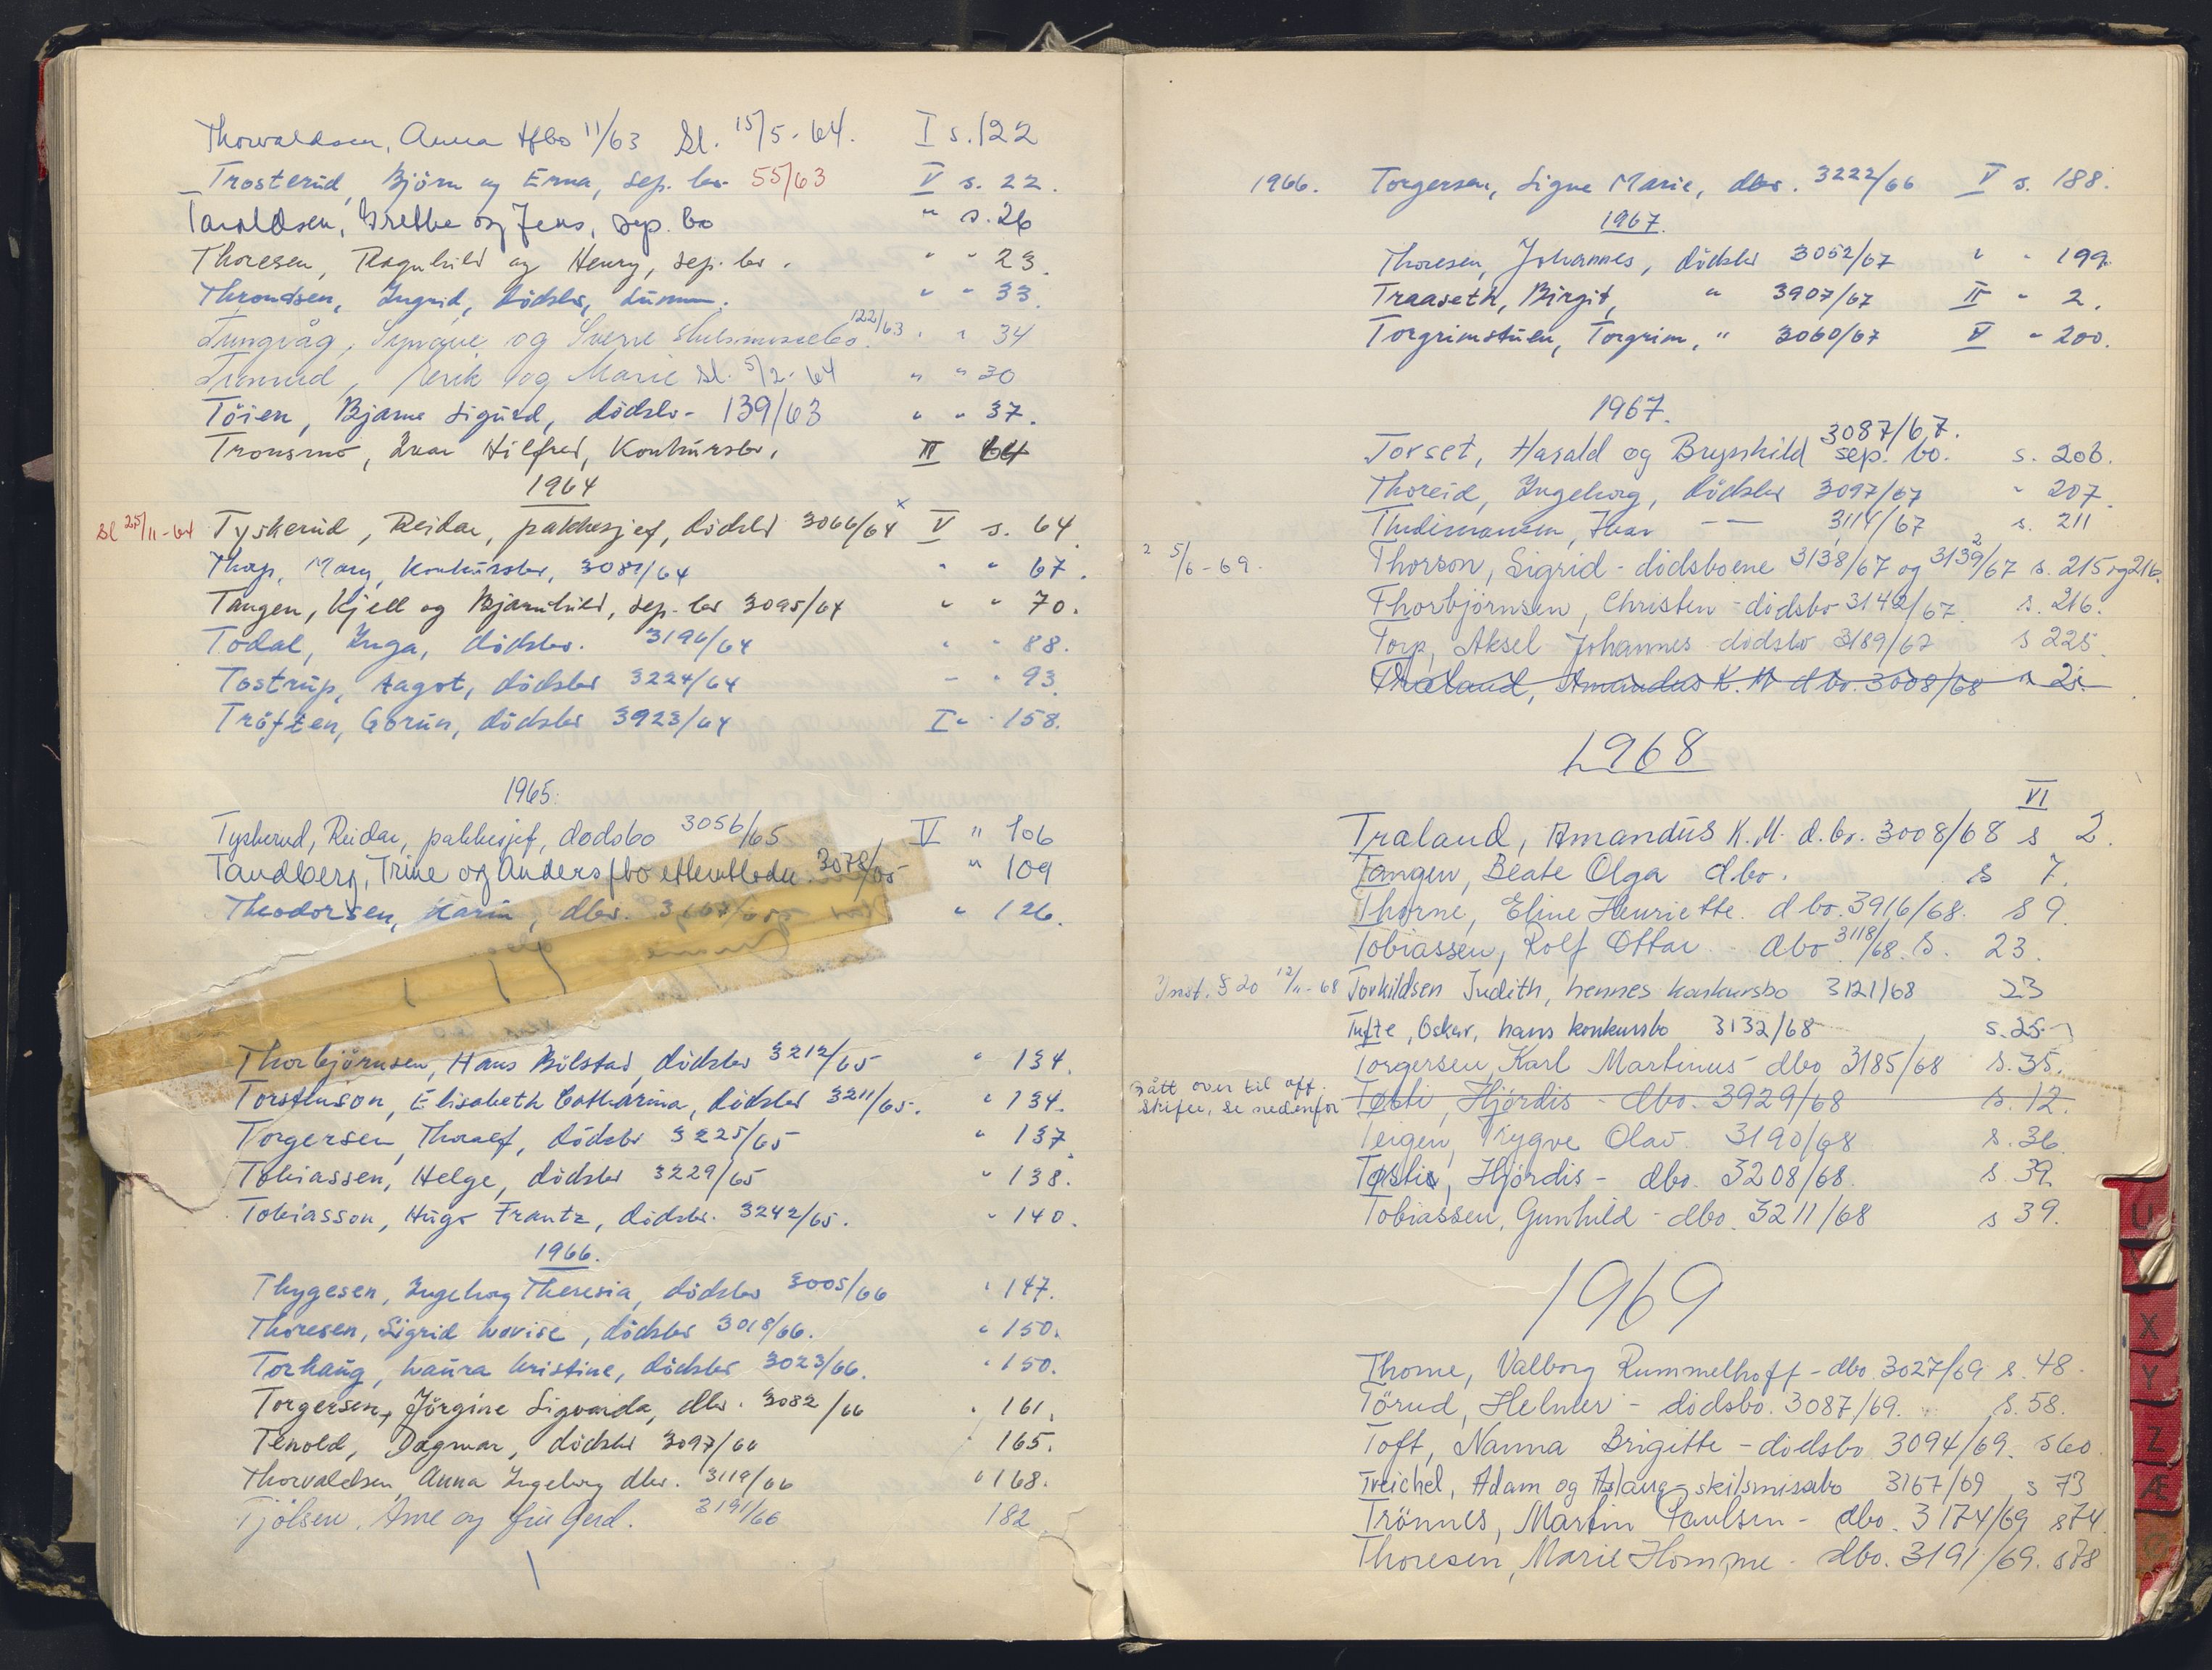 Thorvaldsen, Anna dfbo 11/63 Sl. 15/5-64. I s. 122
Trosterud, Björn og Erna, sep. bo 55/63 V s. 22.
Taraldsen, Grethe og Jens, sep. bo " s. 26
Thoresen, Ragnhild og Henry, sep. bo. " " 23.
Throndsen, Ingrid, dödsbo, " " 33.
og Sverre skilsmissebo 122/63 " " 34
Erik og Marie Sl. 5/2-64 " " 30
Töien, Bjarne Sigurd, dödsbo - 139/63 " " 37.
Tronsmo, Ivar Hilfred, Konkursbo. III 64
1964
Sl 25/11-64 Tyskerud, Reidar, pakkesjef, dödsbo 3066/64 x V s. 64.
Thorp, Mary, Konkursbo, 3081/64 " " 67.
Tangen, Kjell og Bjarnhild, sep. bo 3095/64 " " 70.
Todal, Inga, dödsbo. 3196/64 " " 88.
Tostrup, Aagot, dödsbo 3224/64 - " 93.
Tröften, Gorun, dödsbo 3923/64 I " " 158.
1965.
Tyskerud, Reidar, pakkesjef, dodsbo 3056/65 V " 106
Tandberg, Trine og Anders fbo etterutlodn. 3078/65 " 109
Theodorsen, Karin, dbo. 3167/65 " 126.
Thorbjörnsen, Hans Bölstad, dödsbo 3212/65 " 134.
Torstenson, Elisabeth Catharina, dödsbo 3211/65. " 134.
Torgersen, Thoralf, dödsbo 3225/65 " 137.
Tobiassen, Helge, dödsbo 3229/65 " 138.
Tobiasson, Hugo Frantz, dödsbo. 3242/65. " 140.
1966.
Thygesen, Ingeborg Theresia, dödsbo 3005/66 " 147.
Thoresen, Sigrid Lovise, dödsbo 3018/66. " 150.
Torhaug, Laura Kristine, dödsbo 3023/66. " 150.
Torgersen, Jörgine Sigvarda, dbo. 3082/66 " 161.
Tenold, Dagmar, dödsbo 3097/66 " 165.
Thorvaldsen, Anna Ingeborg dbo. 3119/66 " 168.
Tjölsen, Arne og fru Gerd. 3191/66 182
1966. Torgersen, Signe Marie, dbo. 3222/66 V s. 188.
1967.
Thoresen, Johannes, dödsbo 3052/67 " " 199.
Traaseth, Birgit, " 3907/67 II " 2.
Torgrimstuen, Torgrim, " 3060/67 V " 200.
1967.
Torset, Harald og Brynhild sep. bo. 3087/67. s. 206.
Thoreid, Ingeborg, dödsbo 3097/67 " 207
Thidemansen, Ivar — — 3114/67 s. 211
2 5/6-69. Thorson, Sigrid - dödsboene 3138/67 og 3139/67 s. 215 og 216.
Thorbjörnsen, Christen - dödsbo 3142/67. s. 216.
Torp, Aksel Johannes dödsbo 3189/67 s 225.
Traland, Amandus K. M dbo. 3008/68 s 2.
1968
VI
Traland, Amandus K. M. d.bo. 3008/68 s 2.
Tangen, Beate Olga dbo. s 7.
Thorne, Eline Henriette. dbo. 3916/68. s 9.
Tobiassen, Rolf Ottar - dbo 3118/68. s. 23.
Inst. § 20 12/11-68 Torkildsen Judith, hennes konkursbo 3121/68 23
Tufte, Oskar, hans konkursbo 3132/68 s. 25
Torgersen, Karl Martinus - dbo 3185/68 s. 35.
Gått over til off.
skifte, se nedenfor Tøsti, Hjördis - dbo. 3929/68 s. 12.
Teigen, Trygve Olav. 3190/68 s. 36
Tøsti, Hjördis - dbo. 3208/68. s. 39.
Tobiassen, Gunhild - dbo. 3211/68 s 39.
1969
Thorne, Valborg Rummelhoff - dbo. 3027/69 s. 48.
Törud, Helmer - dödsbo. 3087/69. s. 58.
Toft, Nanna Brigitte - dödsbo 3094/69. s 60.
Treichel, Adam og Aslaug skilsmissbo 3167/69 s 73
Trönnes, Martin Paulsen - dbo. 3174/69 s 74.
Thoresen, Marie Homme - dbo. 3191/69. s 78